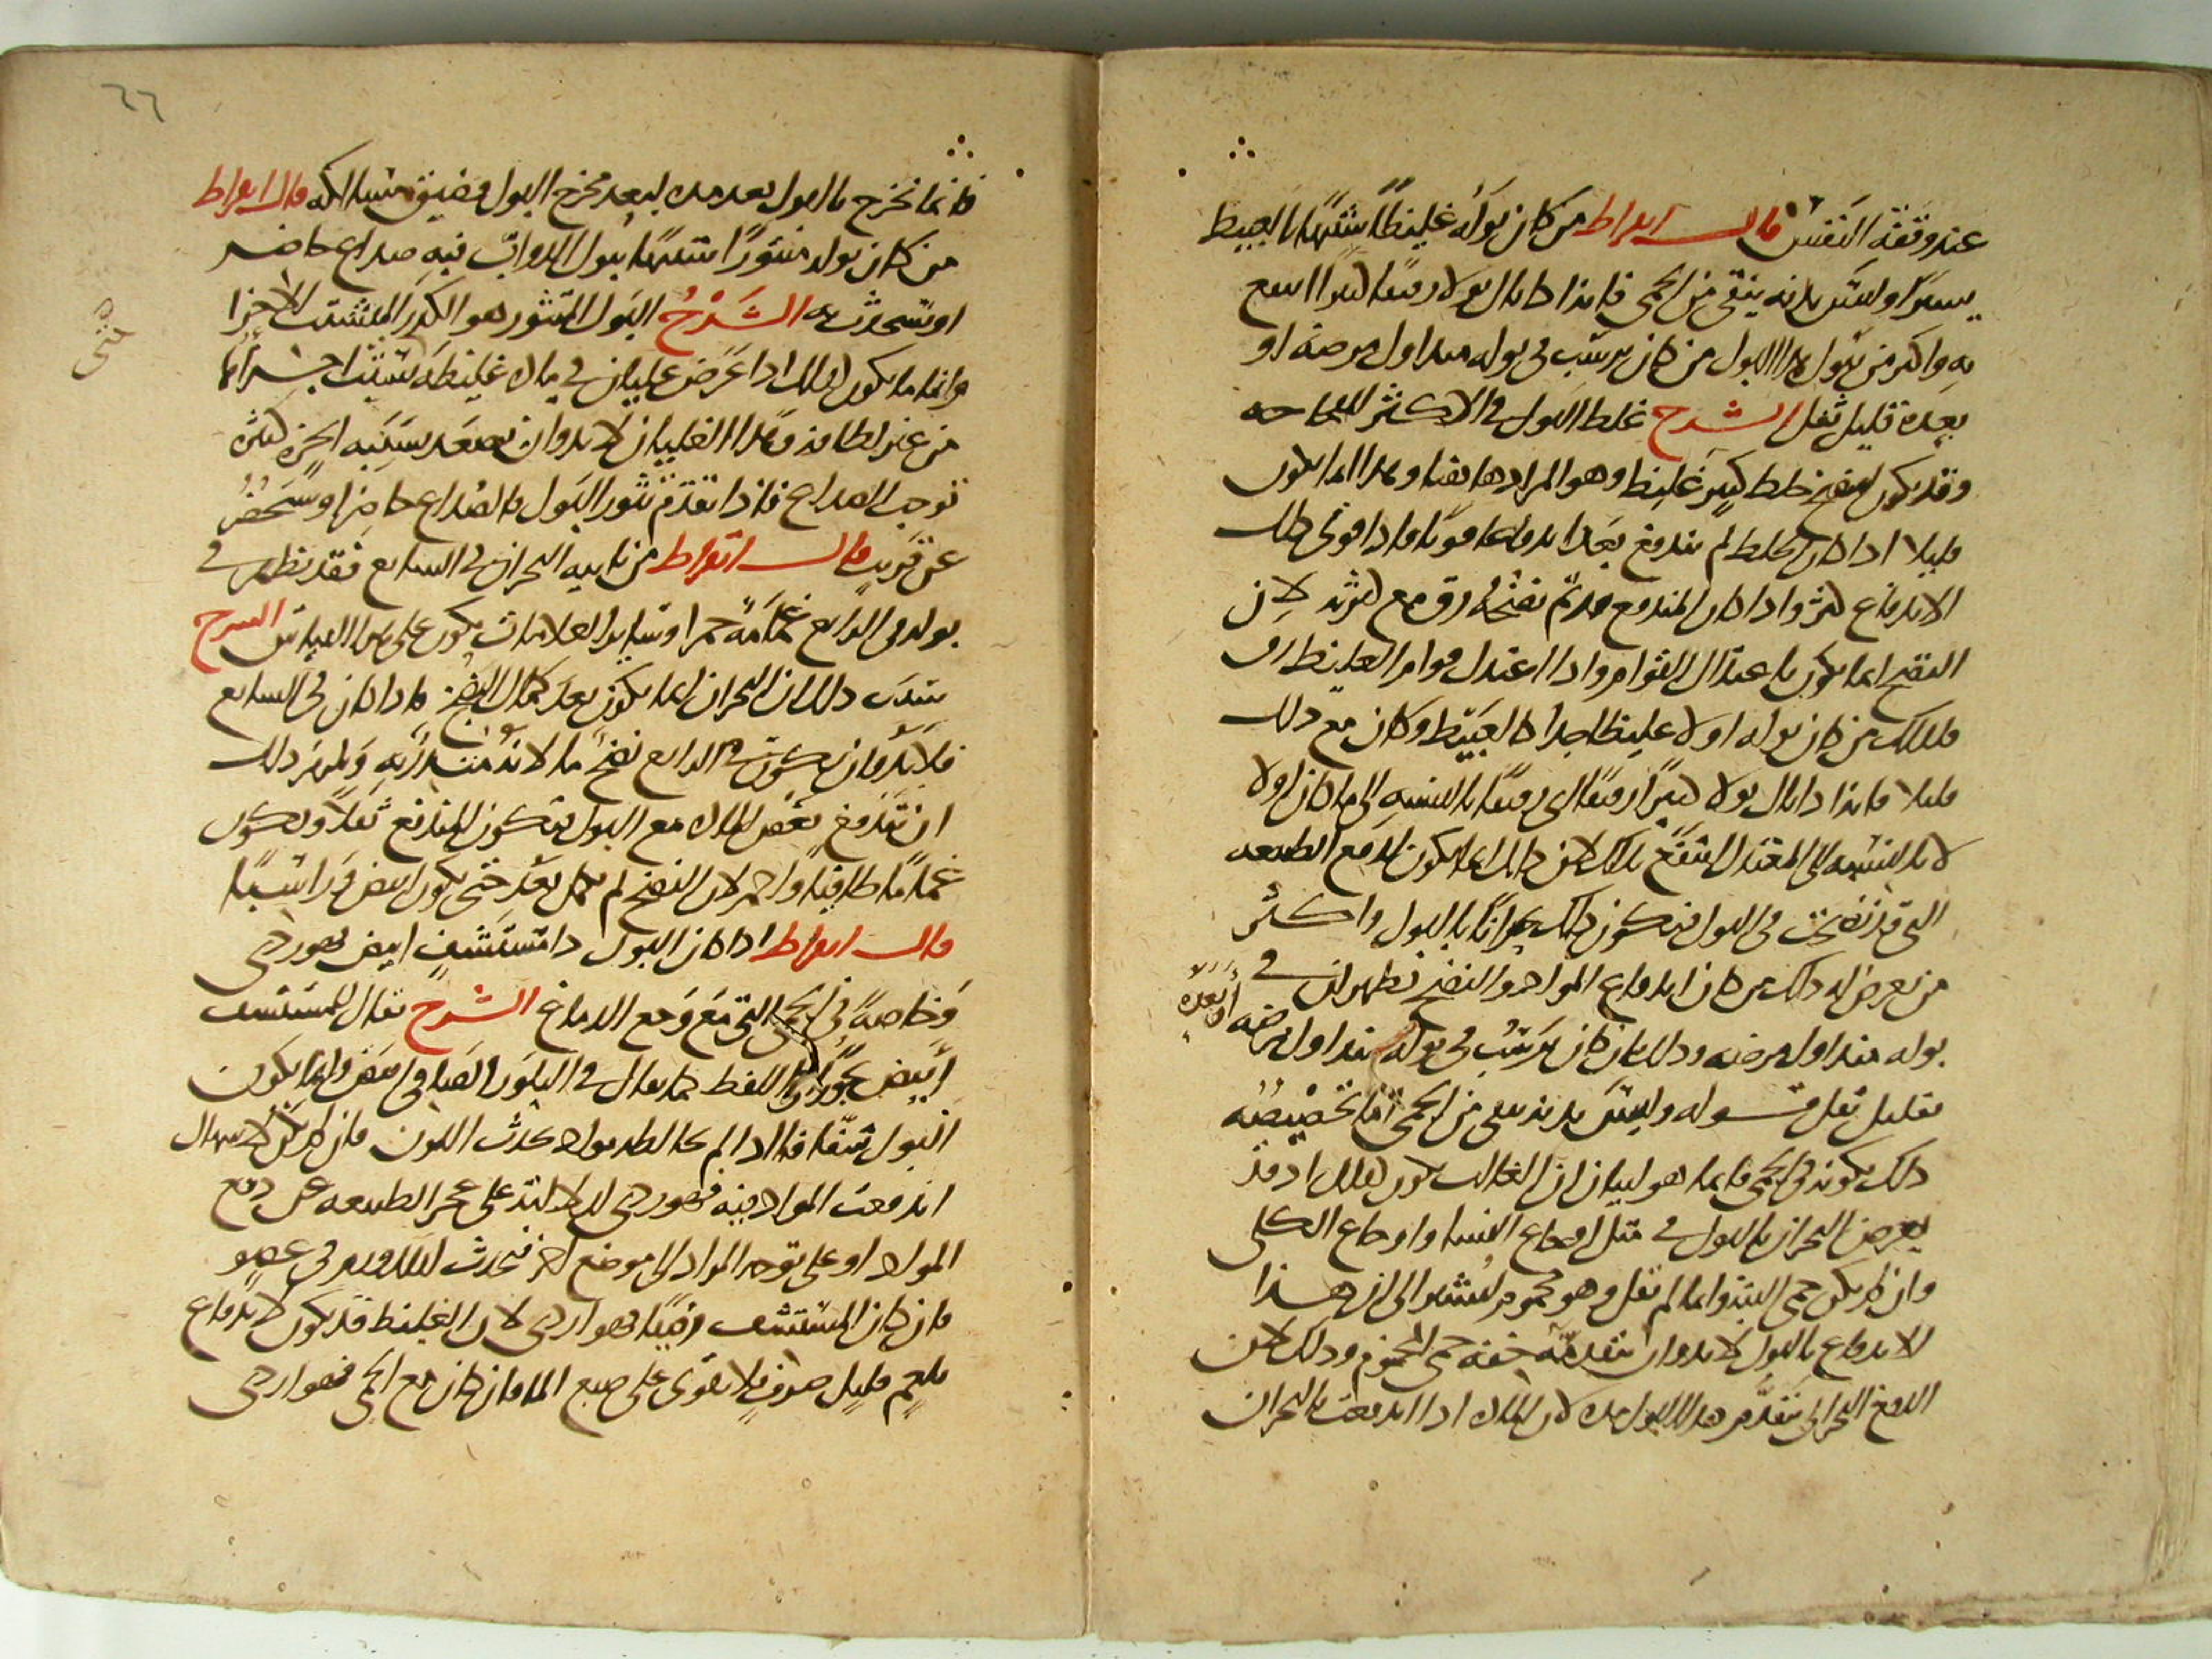 عند وثقة النفس قال ابقراط من كان بوله غليظا شبيها بالعبيط
يسيرا وليس بدنه ينقى من الحمى فانه اذا بال بولا رقيقا كثيرا انتفع
به واكثر من يبول هذا البول من كان يرسب في بوله منذ اول مرضه او
بعده بقليل ثفل الشرح غلظ البول في الاكثر
وقد يكون لنضج خلط كثير غليظ وهو المراد هاهنا وهذا انما يكون
قليلا اذا كان الخلط لم يندفع بعد اندفاعا قويا فاذا قوي ذلك
الاندفاع كثر واذا كان المندفع قد تم نضجه رق مع كثرته لان
النضج انما يكون باعتدال القوام واذا اعتدل قوام الغليظ رق
فلذلك من كان بوله اولا غليظا جدا كالعبيط وكان مع ذلك
قليلا فانه اذا بال بولا كثيرا رقيقا اى رقيقا بالنسبه الى ما كان اولا
لا بالنسبه الى المعتدل انتفع بذلك لان ذلك انما يكون لدفع الطبيعه
التى قد نضجت فى البول فيكون ذلك بحرانا بالبول واكثر
من يعرض له ذلك من كان اندفاع المواد والنضج تظهر ان في
بوله منذ اول مرضه وذلك بان كان يرسب فى بوله منذ اول مرضه او بعده
بقليل ثفل قوله وليس بدنه ينقى من الحمى انما تخصيصه
ذلك بكونه فى الحمى فانما هو لبيان ان الغالب يكون كذلك اذ قد
يعرض البحران بالبول في مثل اوجاع النسا واوجاع الكلى
وان لم يكن حمى البتة وانما لم يقل وهو محموم ليشير الى ان هذا
الاندفاع بالبول لا بد وان يتقدمه خفة حمى المحموم وذلك لان
الدفع البحرانى يتقدم هذا البول مده لان الماده اذا اندفعت بالبحران
فانما تخرج بالبول بعد مده لبعد مخرج البول وضيق مسالكه قال ابقراط
من كان بوله متثورا شبيها ببول الدواب فبه صداع حاضر
او سيحدث به الشرح البول المتثور هو الكدر المتشتت الاجزا
وانما يكون كذلك اذا عرض غليان في ماده غليظه تشتت اجزاها
من غير لطافه وهذا الغليان لا بد وان يصعد بسببه ابخره كثيره
توجب الصداع فاذا تقدم تثور البول فالصداع حاضر او سيحضر
عن قريب قال ابقراط من ياتيه البحران فى السابع فقد يظهر في
بوله فى الرابع غمامة حمرا وساير العلامات يكون على هذا القياس الشرح
سبب ذلك ان البحران انما يكون بعد كمال النضج فاذا كان فى السابع
فلا بد وان يكون في الرابع نضج ما لانه منذر به ويلزم ذلك
ان تندفع بعض الماده مع البول فيكون المندفع ثفلا ويكون
غماما طافيا واحمر لان النضج لم يكمل بعد حتى يكون ابيض وراسبا
قال ابقراط اذا كان البول ذا مستشف ابيض فهو ردى
وخاصة في الحمى التى مع وجع الدماغ الشرح يقال للمستشف
ابيض تجوزا في اللفظ كما يقال في البلور الصافى ابيض وانما يكون
البول شفافا اذا لم تخالطه مواد تحدث اللون فان لم يكن لاسهال
اندفعت المواد فيه فهو ردى لدلالته على عجز الطبيعه عن دفع
المواد او على توجه المواد الى موضع اخر فيحدث في عضو
فان كان المستشف رقيقا فهو اردى لان الغليظ قد يكون لاندفاع
بلغم قليل صرف لا يقوى على صبغ الما فان كان مع الحمى فهو اردى
حتى